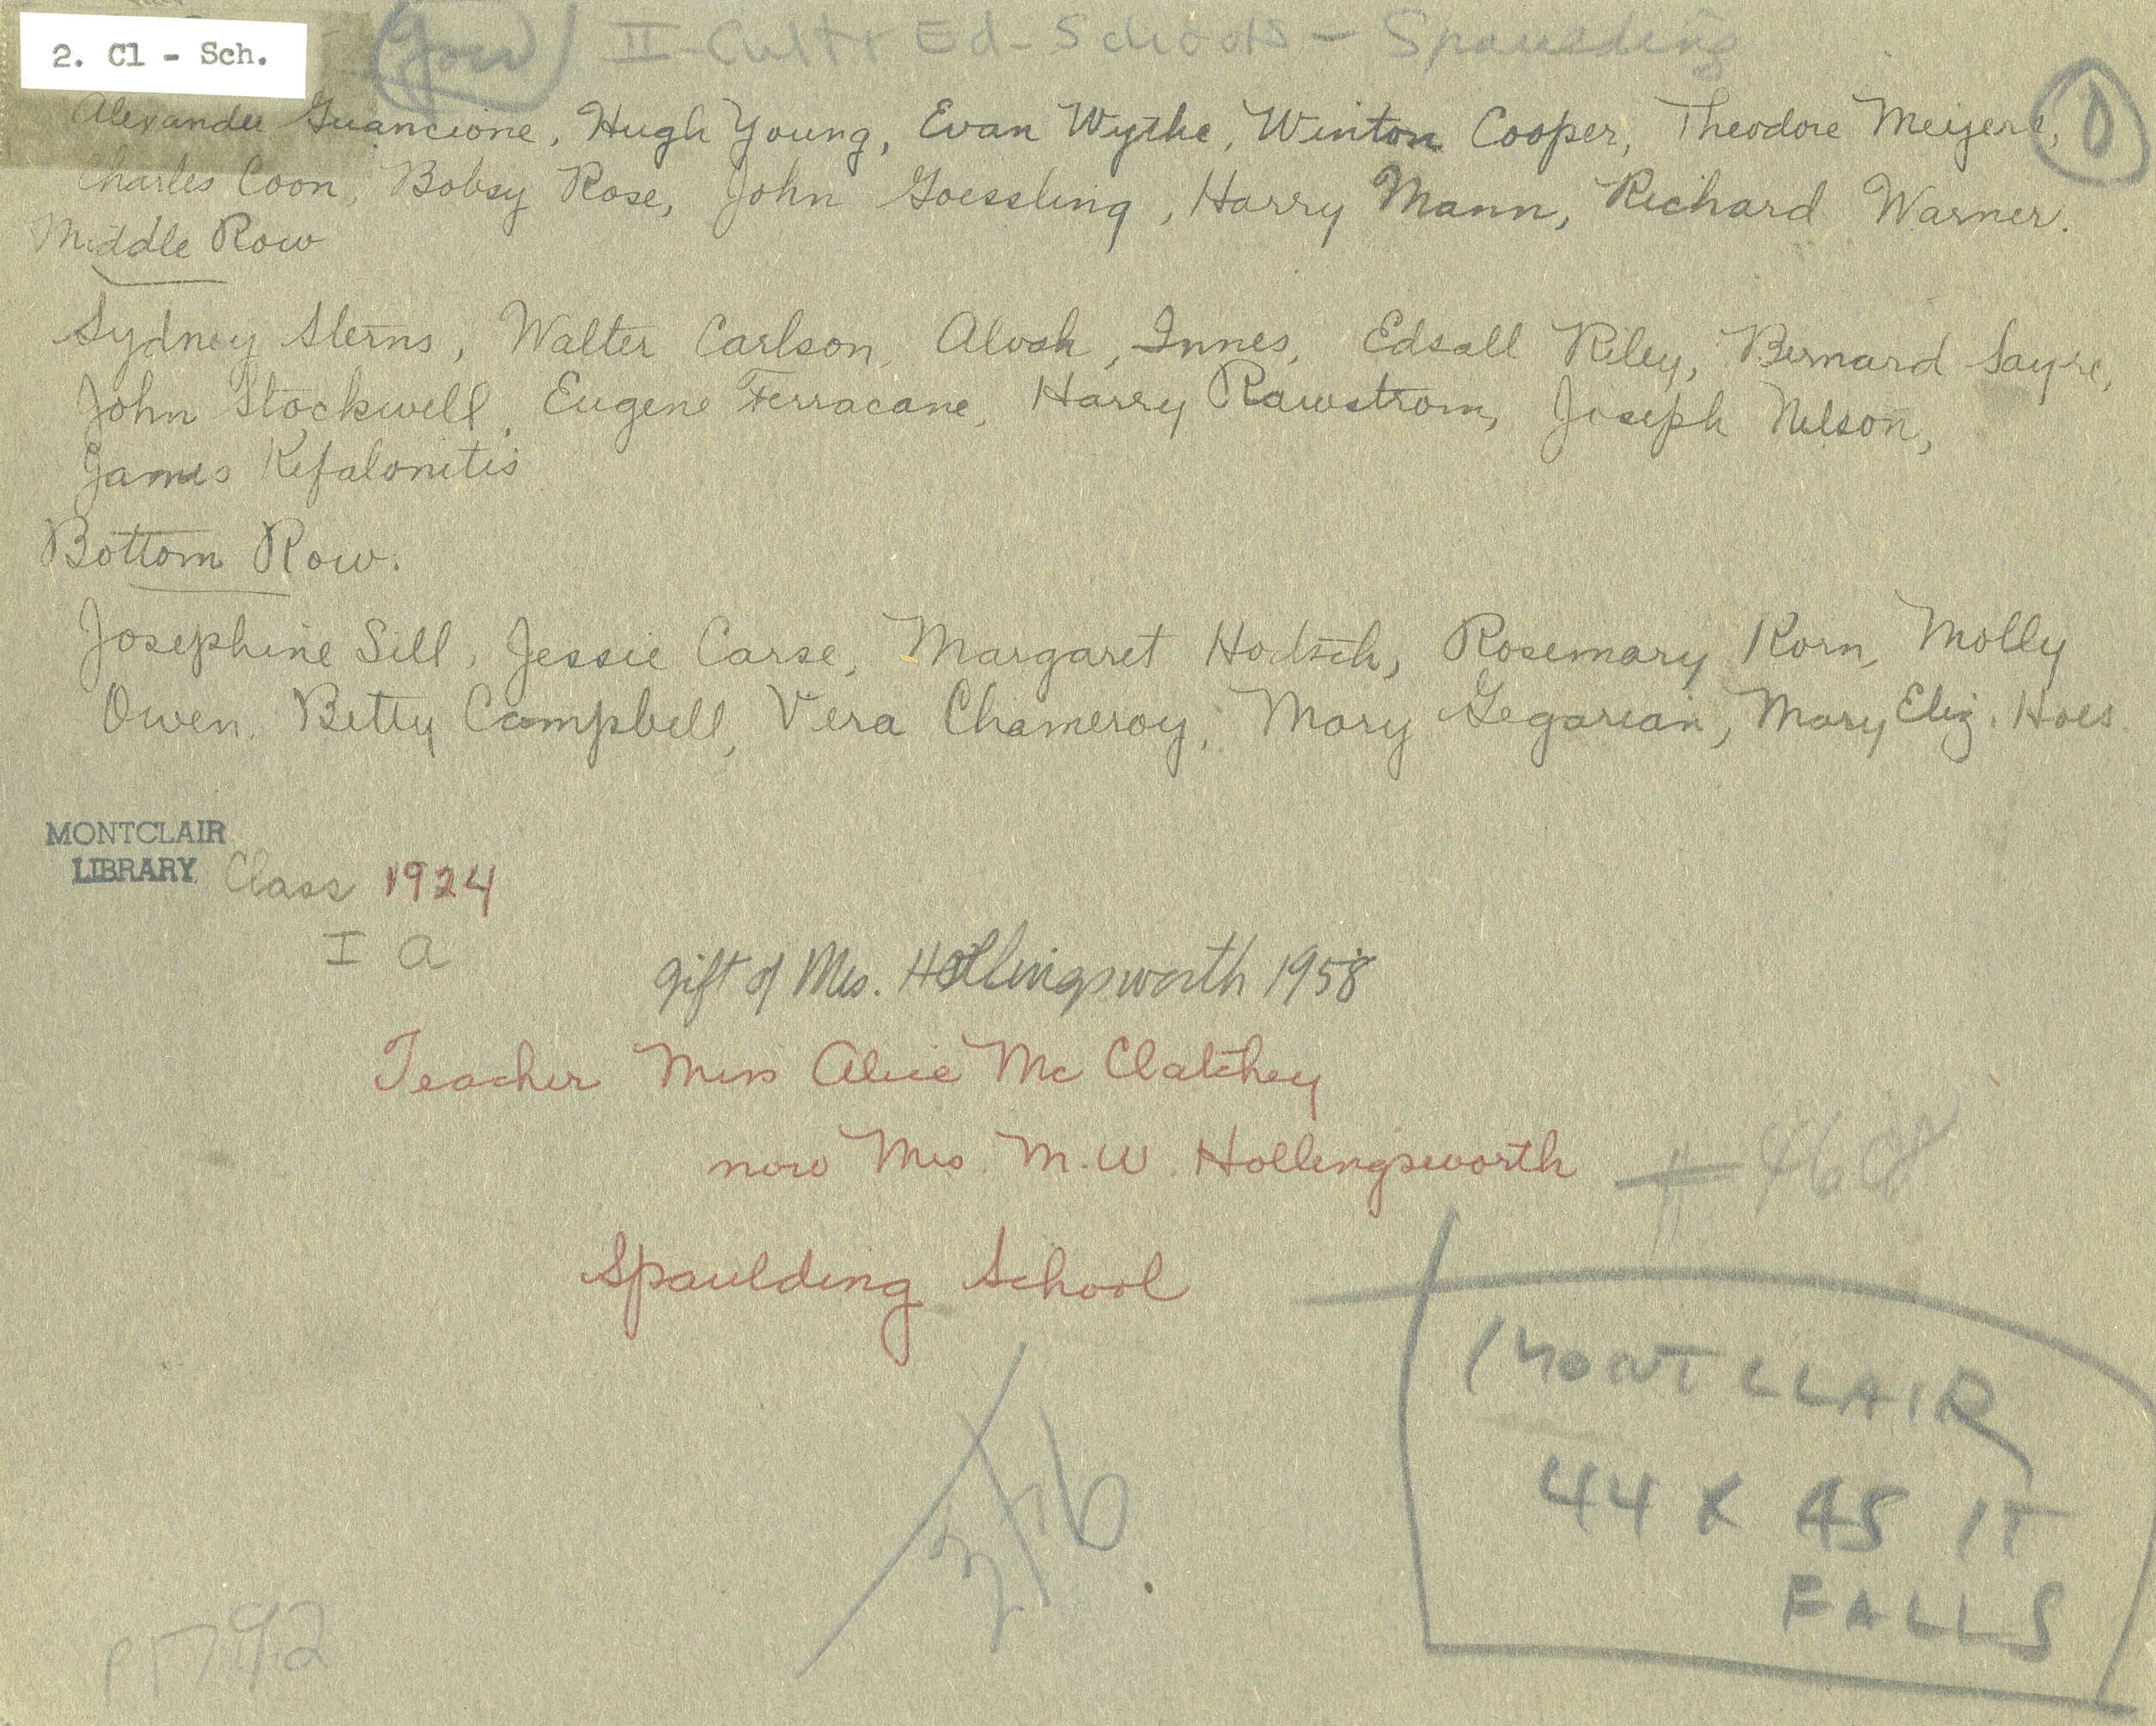 2. Cl - Sch.
II - Cultr Ed - Schools - Spaulding
Alexander Guancione, Hugh Young, Evan Wythe, Winton Cooper, Theodore Meyers,
Charles Coon, Bobsy Rose, John Goessling, Harry Mann, Richard Warner.
Middle Row
Sydney Sterns, Walter Carlson, Innes, Edsall Riley, Bernard Sayre,
John Stockwell, Eugene Ferracane, Harry Rawstrom, Joseph Nelson,
James Kefalonitis
Bottom Row.
Josephine Sill, Jessie Carse, Margaret Rosemary Korn, Molly
Owen, Betty Campbell, Vera Chameroy, Mary Gegarian, Mary Eliz. Hoes.
MONTCLAIR
LIBRARY
Class 1924
I a
gift of Mrs. Hollingsworth 1958
Teacher Miss Alice Mc Clatchey
now Mrs. M.W. Hollingsworth
# 468
Spaulding School
MONTCLAIR
44 X AS IT
FALLS